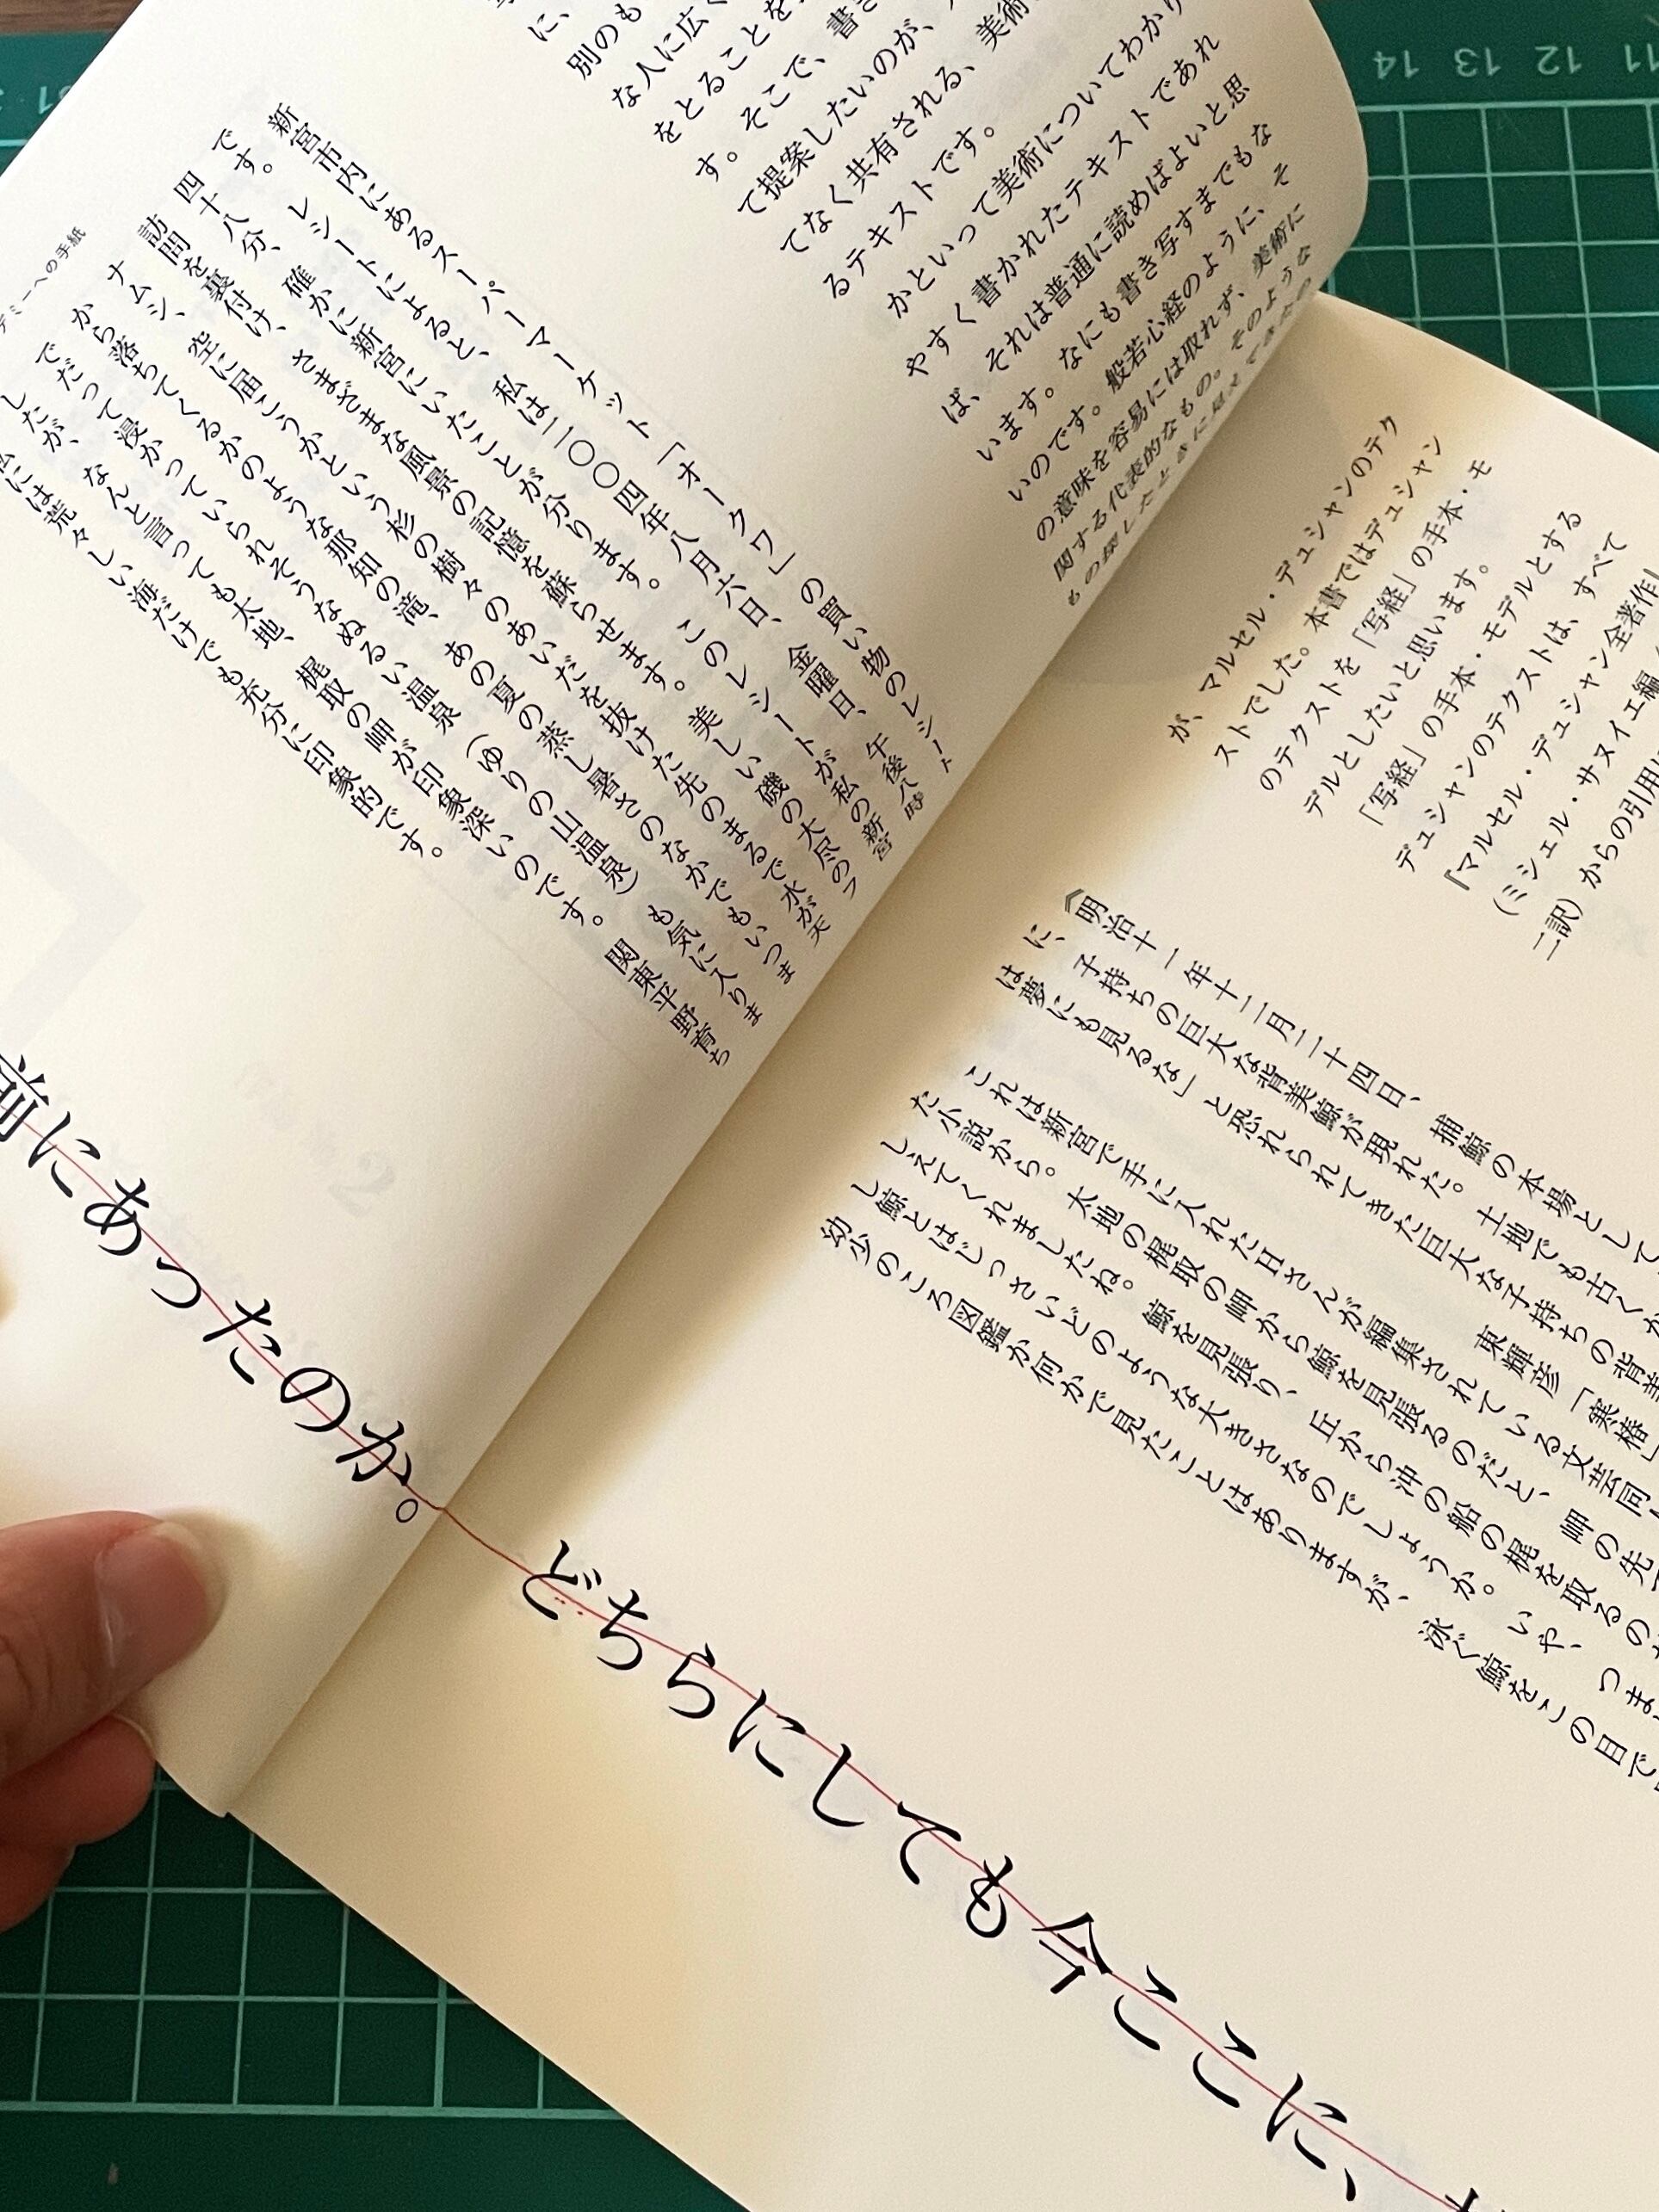 に、
別のも
な人に広く
をとることを
す。そこで、書き
て提案したいのが、
てなく共有される、美術
るテキストです。
かといって美術についてわかり
やすく書かれたテキストであれ
ば、それは普通に読めばよいと思
います。なにも書き写すまでもな
いのです。般若心経のように、そ
の意味を容易には取れず、美術に
関する代表的なもの。そのような
もの探したときに見えてきたの
が、マルセル・デュシャンのテク
ストでした。本書ではデュシャン
のテクストを「写経」の手本・モ
デルとしたいと思います。
「写経」の手本・モデルとする
デュシャンのテクストは、すべて
『マルセル・デュシャン全著作』
(ミシェル・サヌイエ編
二訳)からの引用
新宮市内にあるスーパーマーケット「オークワ」の買い物のレシート
です。レシートによると、私は二〇〇四年八月六日、金曜日、午後八時
四十八分、確かに新宮にいたことが分ります。このレシートが私の新宮
訪問を裏付け、さまざまな風景の記憶を蘇らせます。美しい磯の大尽のフ
ナムシ、空に届こうかという杉の樹々のあいだを抜けた先のまるで水が天
から落ちてくるかのような那知の滝、あの夏の蒸し暑さのなかでもいつま
でだって浸かっていられそうなぬるい温泉(ゆりの山温泉)も気に入りま
したが、なんと言っても太地、梶取の岬が印象深いのです。関東平野育ち
私には荒々しい海だけでも充分に印象的です。
デミーへの手紙
《明治十一年十二月二十四日、捕鯨の本場として
に、子持ちの巨大な背美鯨が現れた。土地でも古くか
は夢にも見るな」と恐れられてきた巨大な子持ちの背美
東輝彦「寒椿」
これは新宮で手に入れた日さんが編集されている文芸同
た小説から。太地の梶取の岬から鯨を見張るのだと、岬の先
しえてくれましたね。鯨を見張り、丘から沖の船の梶を取るの
し鯨とはじっさいどのような大きさなのでしょうか。いや、つま
幼少のころ図鑑か何かで見たことはありますが、泳ぐ鯨をこの目で
前にあったのか。どちらにしても今ここに、